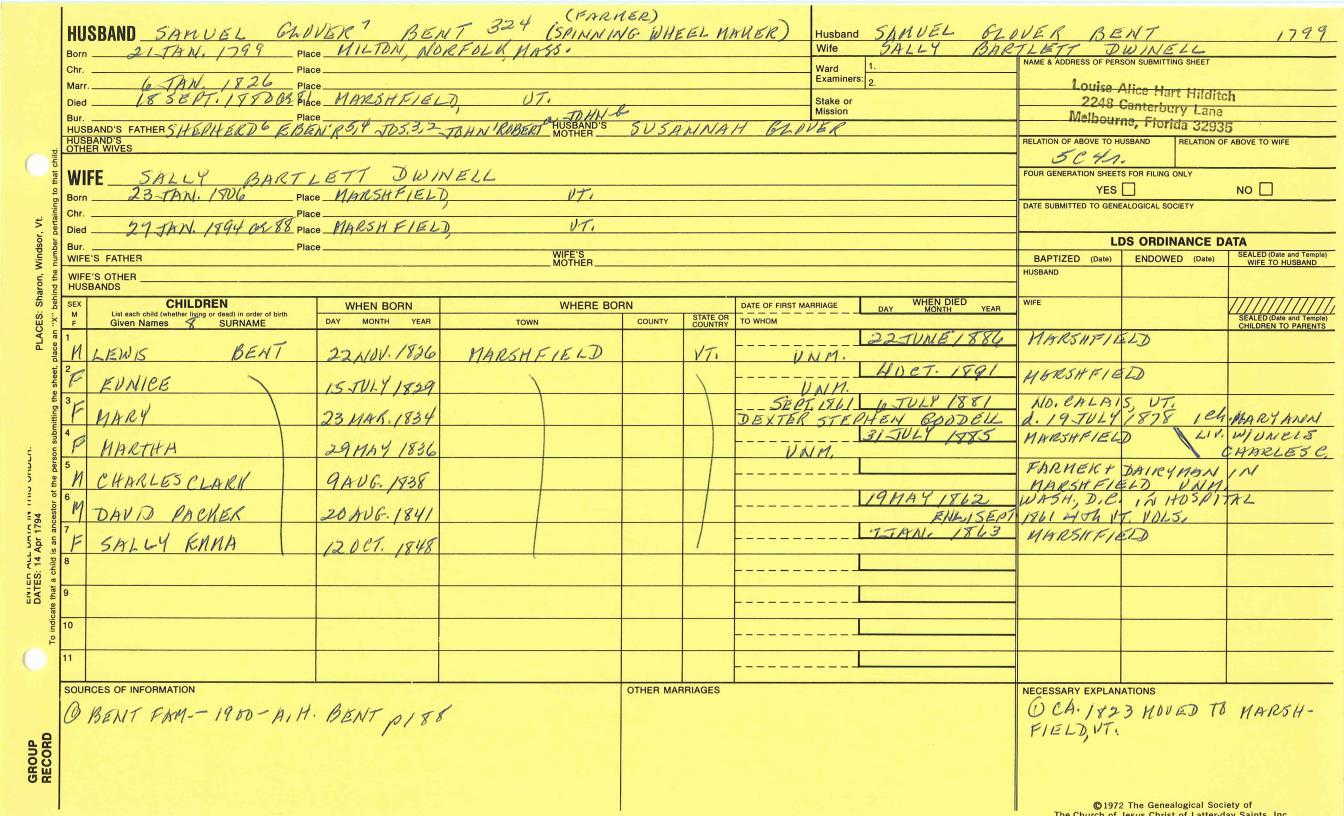 (FARMER)
HUSBAND SAMUEL GLOVER 7 BENT 324 (SPINNING WHEEL MAKER)
Born 21 JAN. 1799 Place MILTON, NORFOLK, MASS.
Chr. Place
Marr. 6 JAN. 1826 Place
Died 18 SEPT. 1880 OR 81 Place MARSHFIELD, VT.
Bur. Place
HUSBAND'S FATHER SHEPHERD 6 EBEN'R 5,4 JOS. 3,2 JOHN 1 ROBERT a JOHN b HUSBAND'S MOTHER SUSANNAH GLOVER
HUSBAND'S OTHER WIVES
WIFE SALLY BARTLETT DWINELL
Born 23 JAN. 1806 Place MARSHFIELD, VT.
Chr. Place
Died 27 JAN. 1894 OR 88 Place MARSHFIELD, VT.
Bur. Place
WIFE'S FATHER WIFE'S MOTHER
WIFE'S OTHER HUSBANDS
Husband SAMUEL GLOVER BENT 1799
Wife SALLY BARTLETT DWINELL
Ward Examiners: 1.
2.
Stake or Mission
NAME & ADDRESS OF PERSON SUBMITTING SHEET
Louise Alice Hart Hilditch
2248 Canterbury Lane
Melbourne, Florida 32935
RELATION OF ABOVE TO HUSBAND RELATION OF ABOVE TO WIFE
5C4r.
FOUR GENERATION SHEETS FOR FILING ONLY
YES NO
DATE SUBMITTED TO GENEALOGICAL SOCIETY
LDS ORDINANCE DATA
BAPTIZED (Date) ENDOWED (Date) SEALED (Date and Temple) WIFE TO HUSBAND
HUSBAND
WIFE
SEALED (Date and Temple) CHILDREN TO PARENTS
SEX M F CHILDREN WHEN BORN WHERE BORN DATE OF FIRST MARRIAGE WHEN DIED
List each child (whether living or dead) in order of birth
Given Names 8 SURNAME DAY MONTH YEAR TOWN COUNTY STATE OR COUNTRY TO WHOM DAY MONTH YEAR
1 M LEWIS BENT 22 NOV. 1826 MARSHFIELD VT. UNM. 22 JUNE 1886 MARSHFIELD
2 F EUNICE 15 JULY 1829 UNM. 4 OCT. 1891 MARSHFIELD
3 F MARY 23 MAR. 1834 SEPT. 1861 6 JULY 1881 NO. CALAIS, VT.
DEXTER STEPHEN GODDELL d. 19 JULY 1878 1 ch. MARY ANN
4 F MARTHA 29 MAY 1836 UNM. 31 JULY 1885 MARSHFIELD LIV. W/UNCLE CHARLES C.
5 M CHARLES CLARK 9 AUG. 1838 FARMER + DAIRYMAN IN MARSHFIELD UNM.
6 M DAVID PACKER 20 AUG. 1841 19 MAY 1862 WASH, D.C. IN HOSPITAL
ENL. 1 SEPT 1861 4th VT. VOLS.
7 F SALLY EMMA 12 OCT. 1848 7 JAN. 1863 MARSHFIELD
8
9
10
11
SOURCES OF INFORMATION
① BENT FAM.-1900-A.H. BENT p188
OTHER MARRIAGES
NECESSARY EXPLANATIONS
① CA. 1823 MOVED TO MARSH-
FIELD, VT.
©1972 The Genealogical Society of
The Church of Jesus Christ of Latter-day Saints, Inc.
PLACES: Sharon, Windsor, Vt.
ENTER ALL DATA IN THIS ORDER:
DATES: 14 Apr 1794
To indicate that a child is an ancestor of the person submitting the sheet, place an "X" behind the number pertaining to that child.
GROUP
RECORD